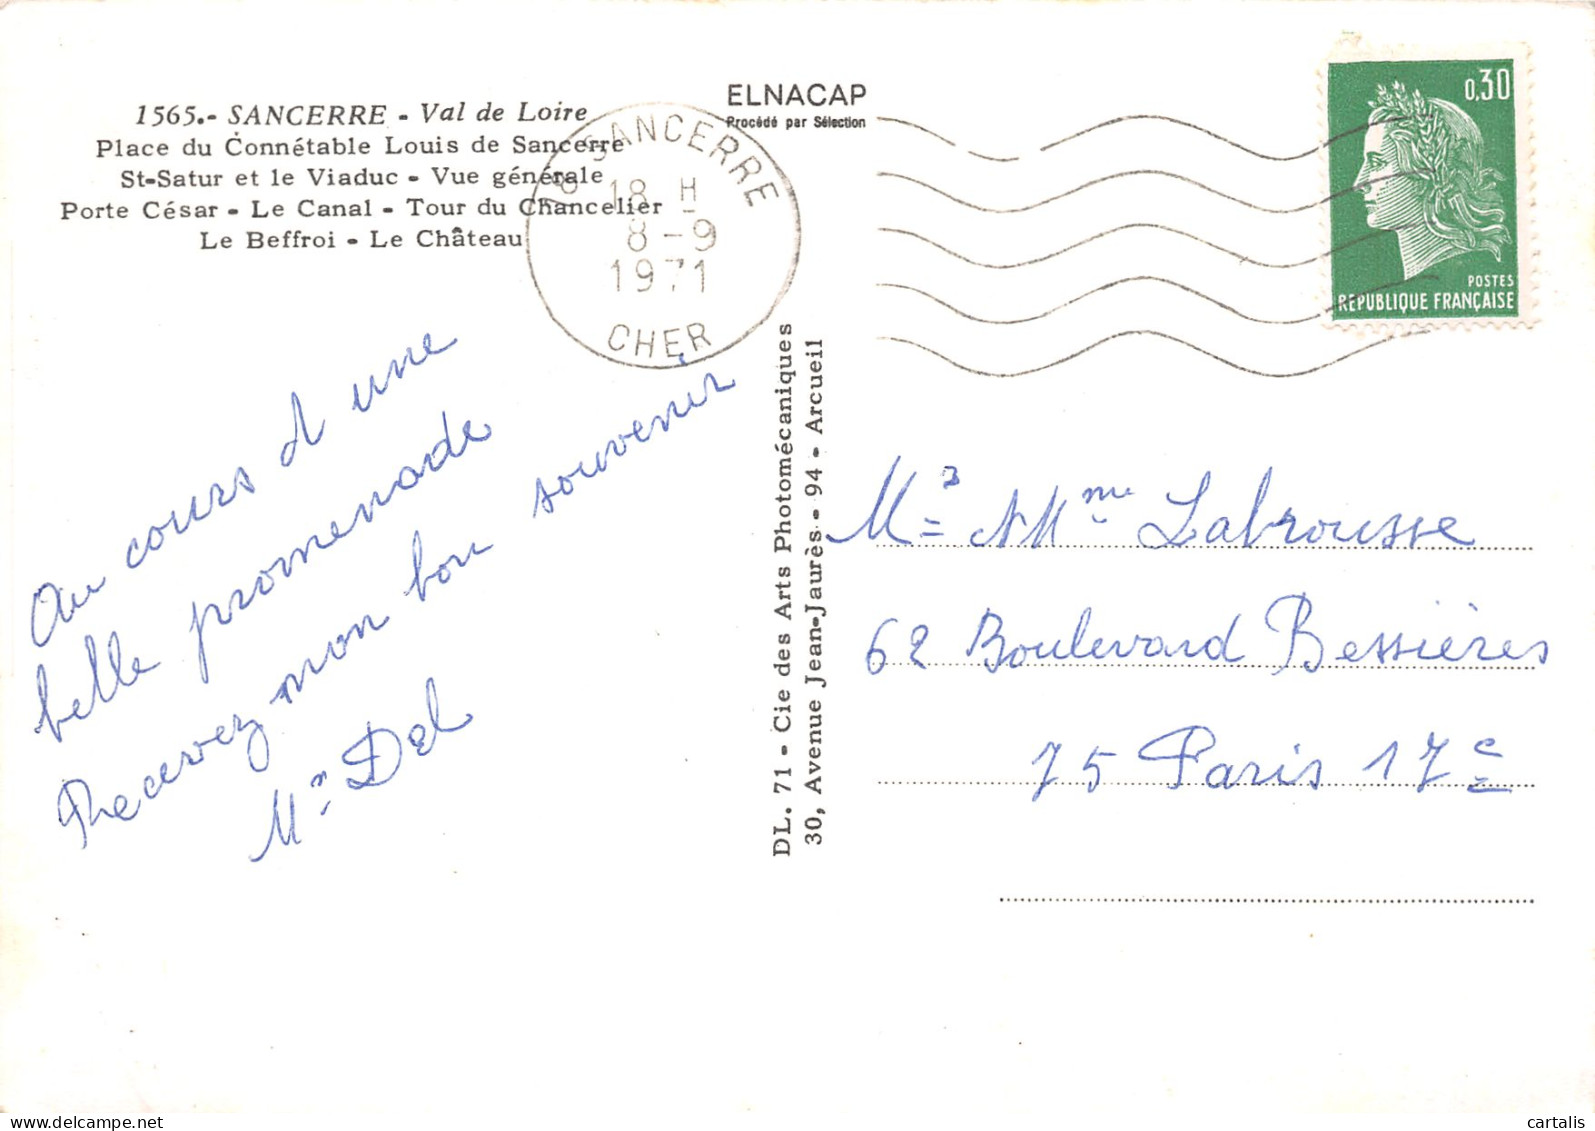 1565.- SANCERRE - Val de Loire
Place du Connétable Louis de Sancerre
St-Satur et le Viaduc - Vue générale
Porte César - Le Canal - Tour du Chancelier
Le Beffroi - Le Château
ELNACAP
Procédé par Sélection
18 SANCERRE
18 H
8 - 9
1971
CHER
0,30
POSTES
REPUBLIQUE FRANÇAISE
Au cours d une
belle promenade
Recevez mon bon souvenir
Mr Del
DL. 71 - Cie des Arts Photomécaniques
30, Avenue Jean-Jaurès - 94 - Arcueil
Mr Mme Labrousse
62 Boulevard Bessières
75 Paris 17e
cartalis